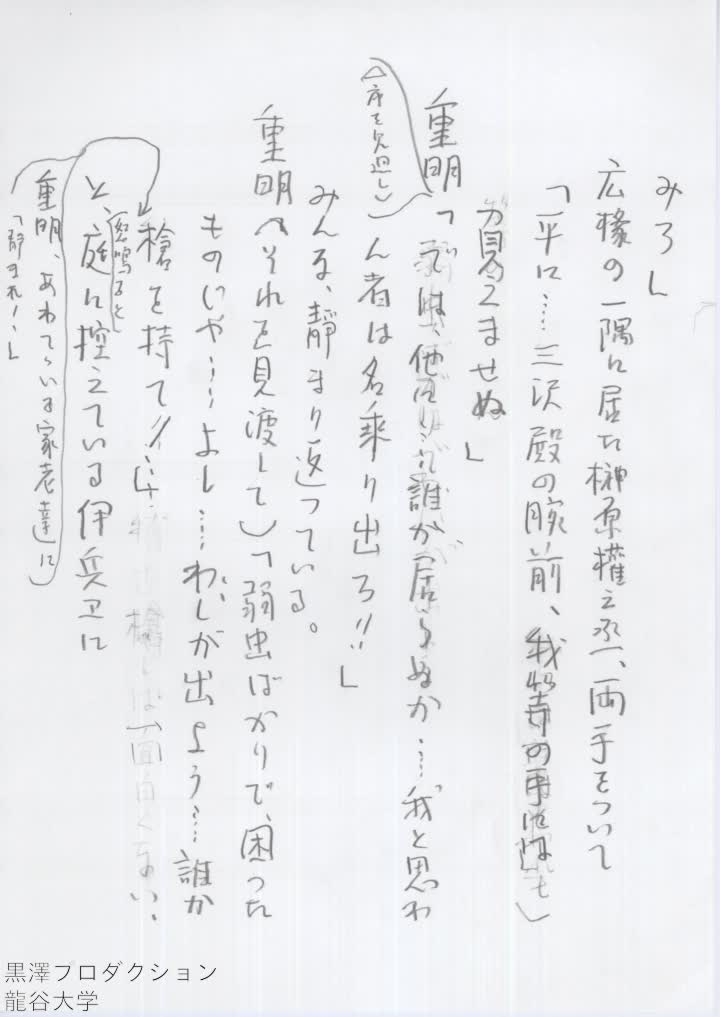 みろ」
広椽の一隅に居た榊原権之丞、両手をついて
「平に……三沢殿の腕前、我等の手には
買えませぬ」
重明「では、他に誰が居らぬか……我と思わ
(一座を見廻し)
ん者は名乗り出ろ!!」
みんな、静まり返っている。
重明(それを見渡して)「弱虫ばかりで、困った
ものじゃ……よし……わしが出よう……誰か
槍を持て!!……」
と、庭に控えている伊兵卫に
怒鳴ると
重明、あわてゝいる家老達に)
「静まれ!、」
黒澤プロダクション
龍谷大学